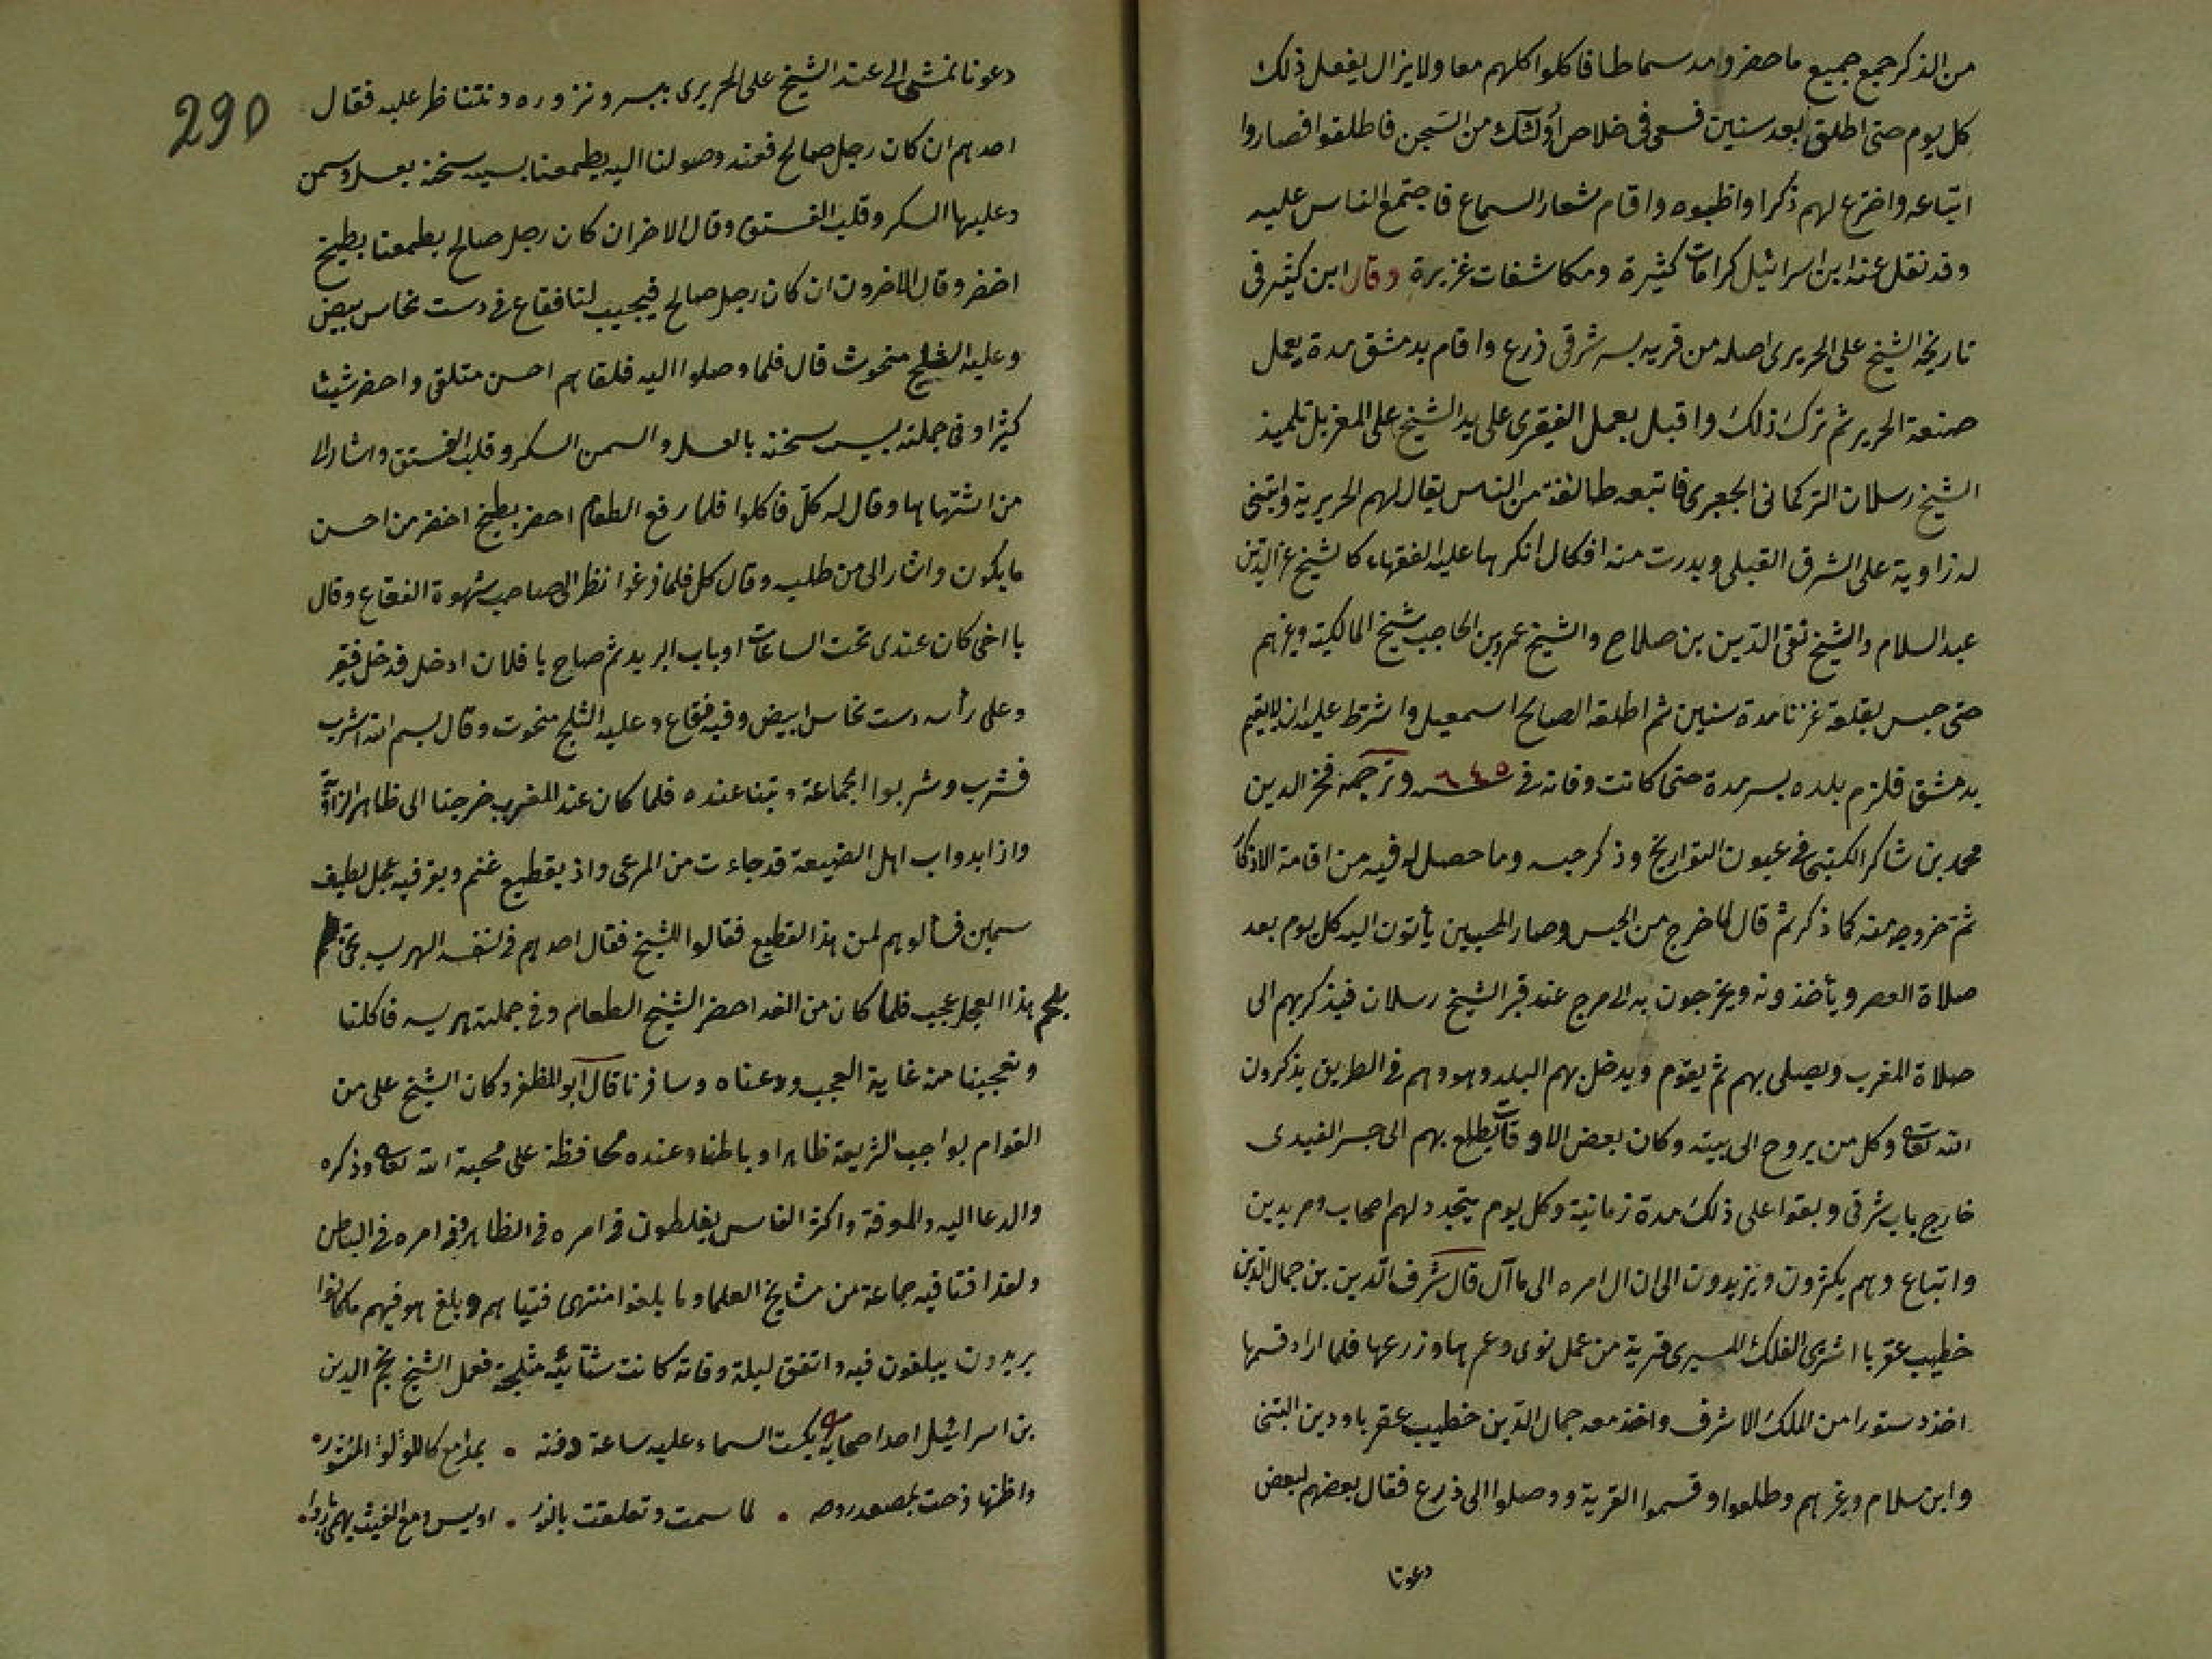 من الذكر جمع جميع ما حضر ومد سماطا فاكلوا كلهم معا ولا يزال يفعل ذلك
كل يوم حتى اطلق بعد سنين فسعى فى خلاص أولئك من السجن فاطلقوا فصاروا
اتباعه واخترع لهم ذكرا واظبوه واقام شعار السماع فاجتمع الناس عليه
وقد نقل عنه ابن اسرائيل كرامات كثيرة ومكاشفات غزيرة وقال ابن كثير فى
تاريخه الشيخ على الحريرى اصله من قريه بسر شرقى ذرع واقام بدمشق مدة يعمل
صنعة الحرير ثم ترك ذلك واقبل بعمل الفقيرى على يد الشيخ على المغربل تلميذ
الشيخ رسلان التركمانى الجعبرى فاتبعه طائفة من الناس يقال لهم الحريرية وابتنى
له زاوية على الشرق القبلى وبدرت منه افكال انكرها عليه الفقهاء كالشيخ عز الدين
عبد السلام والشيخ تقى الدين بن صلاح والشيخ عمرو بن الحاجب شيخ المالكية وغيرهم
حتى حبس بقلعة عزتا مدة سنين ثم اطلقه الصالح اسمعيل واشترط عليه ان لا يقيم
بدمشق فلزم بلده بسر مدة حتى كانت وفاته فى سنة ٦٤٥ وترجمه فخر الدين
محمد بن شاكر الكتبى فى عيون التواريخ وذكر حبسه وما حصل له فيه من اقامة الاذكار
ثم خروجه منه كما ذكر ثم قال لما خرج من الحبس وصار المحبين يأتون اليه كل يوم بعد
صلاة العصر ويأخذونه ويخرجون به الى مرج عند قبر الشيخ رسلان فيذكر بهم الى
صلاة المغرب ويصلى بهم ثم يقوم ويدخل بهم البلد وهو وهم فى الطريق يذكرون
الله تعالى وكل من يروح الى بيته وكان بعض الاوقات يطلع بهم الى جسر الفيدى
خارج باب شرقى وبقوا على ذلك مدة زمانية وكل يوم يتجدد لهم اصحاب ومريدين
واتباع وهم يكثرون ويزيدون الى ان ال امره الى ما آل قال شرف الدين بن جمال الدين
خطيب عقربا اشترى الفلك المسيرى قرية من عمل نوى وعمرها وزرعها فلما اراد قسمها
اخذ دستورا من الملك الاشرف واخذ معه جمال الدين خطيب عقربا ودين البتنى
وابن سلام وغيرهم وطلعوا وقسموا القرية ووصلوا الى ذرع فقال بعضهم لبعض
دعونا
290
دعونا نمشى الى عند الشيخ على الحريرى ببسر ونزوره ونتناظر عليه فقال
احدهم ان كان رجل صالح فعند وصولنا اليه يطعمنا بسيسه سخنة بعسل وسمن
وعليها السكر وقلب الفستق وقال الاخر ان كان رجل صالح يطعمنا بطيخ
اخضر وقال الاخرون ان كان رجل صالح فيجيب لنا فقاع فى دست نحاس ابيض
وعليه الثلج منحوت قال فلما وصلوا اليه فلقاهم احسن متلقى واحضر شيئا
كثيرا وفى جملته بسيسه سخنه بالعسل والسمن السكر وقلب الفستق واشار الى
من اشتهاها وقال له كل فاكلوا فلما رفع الطعام احضر بطيخ اخضر من احسن
ما يكون واشار الى من طلبه وقال كل فلما فرغوا نظر الى صاحب شهوة الفقاع وقال
يا اخى كان عندى تحت الساعات او باب البريد ثم صاح يا فلان ادخل فدخل فقير
وعلى رأسه دست نحاس ابيض وفيه فقاع وعليه الثلج منحوت وقال بسم الله اشرب
فشرب وشربوا الجماعة وبتنا عنده فلما كان عند المغرب خرجنا الى ظاهر الزاوية
واذا بدواب اهل الضيعة قد جاءت من المرعى واذ بقطيع غنم وبقر فيه عجل لطيف
سمين فسألوهم لمن هذا القطيع فقالوا للشيخ فقال احدهم فى نفسه الهريسه
بلحم هذا العجل عجيب فلما كان من الغد احضر الشيخ الطعام وفى جملته هريسه فاكلنا
وتعجبنا منه غاية العجب وودعناه وسافرنا قال ابو المظفر وكان الشيخ على من
القوام بواجب الشريعة ظاهرا وباطنا وعنده محافظة على محبة الله تعالى وذكره
والدعا اليه والموفة واكثر الناس يغلطون فى امره فى الظاهر وفى امره فى الباطن
ولقد افتا فيه جماعة من مشايخ العلما وما بلغوا منتهى فتياهم وبلغ هو فيهم ما كانوا
يريدون يبلغون فيه واتفق ليلة وفاته كانت شتائيه مثلجة فعمل الشيخ نجم الدين
بن اسرائيل احد اصحابه بكت السماء عليه ساعة دفنه • بمدامع كاللؤلؤ المنثور •
واظنها فرحت بمصعد روحه • لما سمت وتعلقت بالنور • اوليس دمع الغيث يهمى باردا •